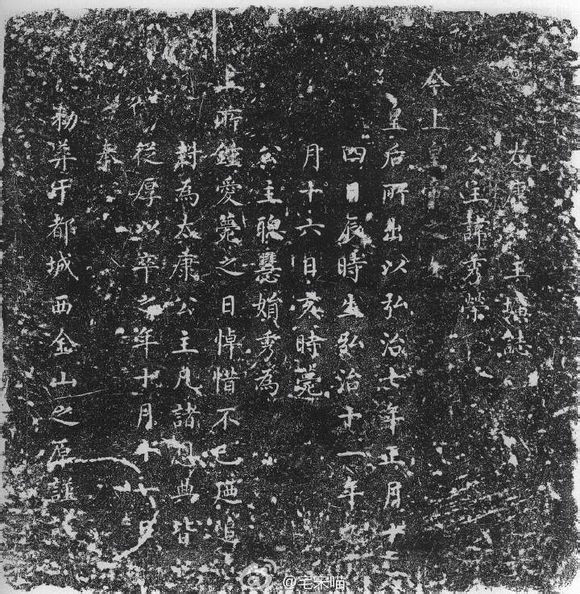 太康公主壙誌
公主諱秀榮
今上皇帝之
皇后所出以弘治七年正月十
四日辰時生弘治十一年九
月十六日亥時薨
公主聰慧娟秀為
上所鍾愛薨之日悼惜不已追
封為太康公主凡諸恩典皆
從厚以卒之年十月十日
奉
勅葬于都城西金山之原謹